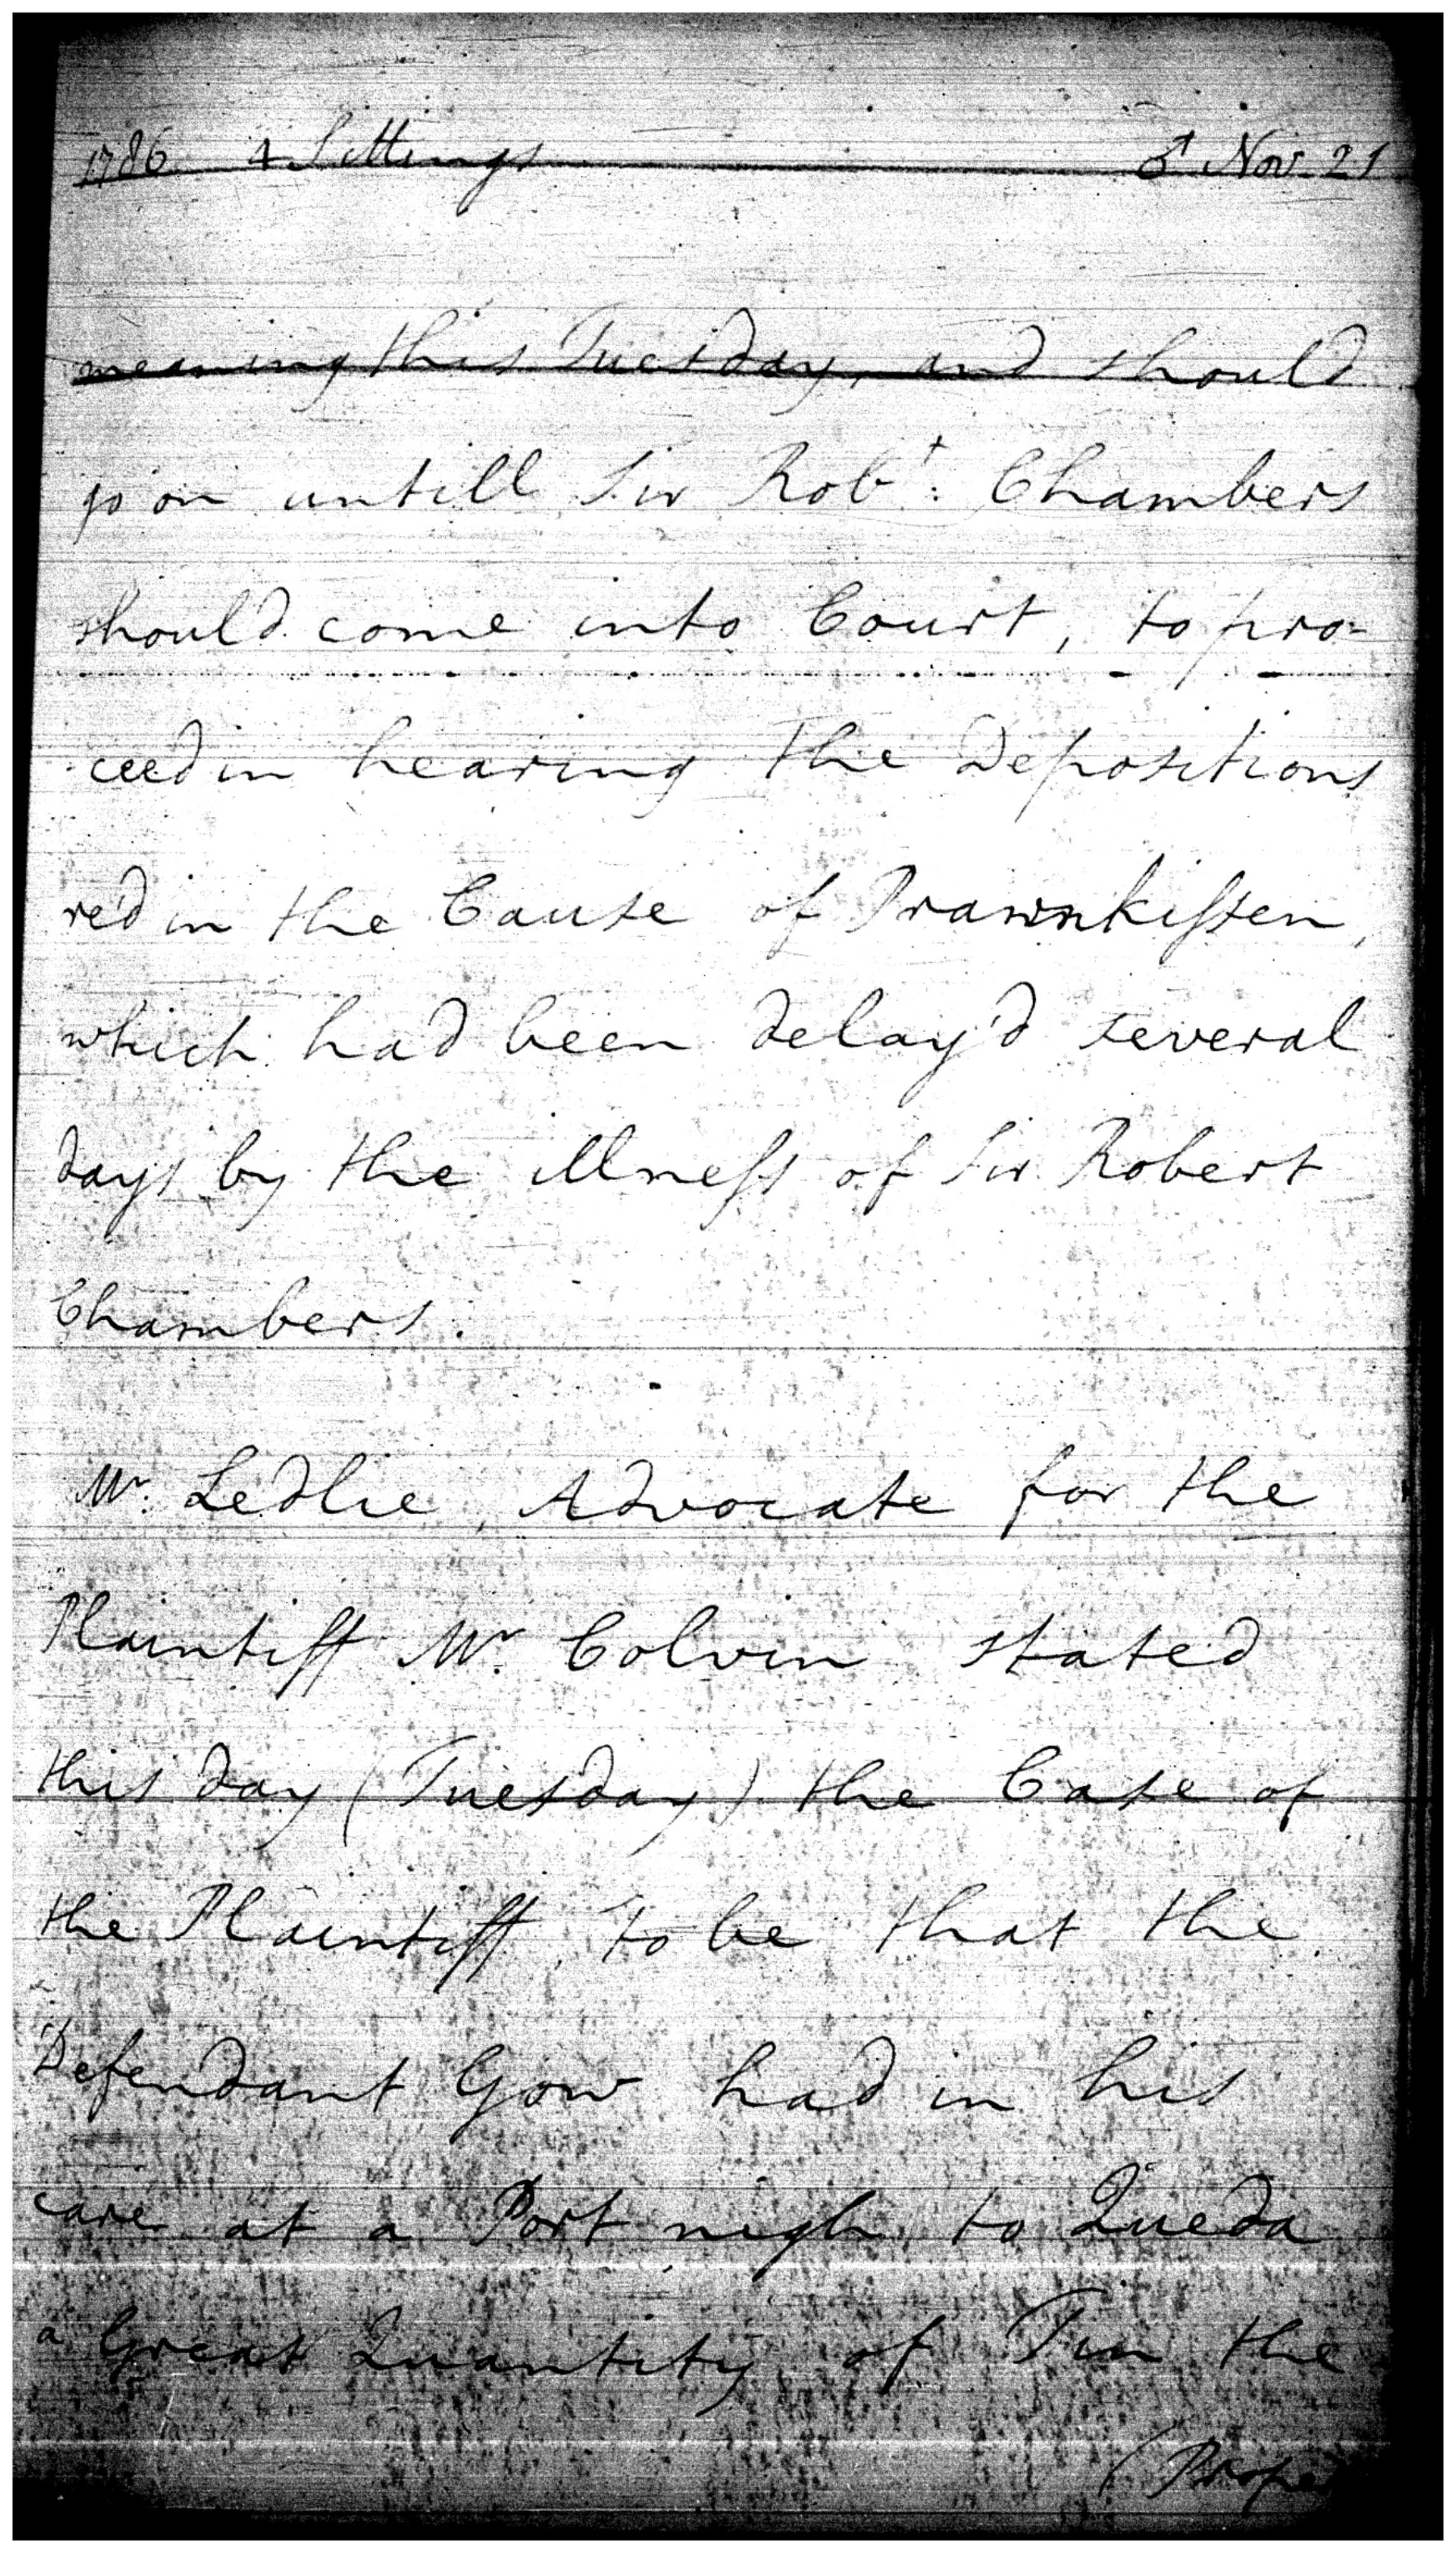 1786 4 Sittings ♂ Nov. 21
meaning this Tuesday, and should
go on untill Sir Robt: Chambers
should come into Court, to pro-
ceed in hearing the Depositions
red in the Cause of Prawnkissen,
which had been delay'd several
days by the illness of Sir Robert
Chambers.
Mr. Ledlie, Advocate for the
Plaintiff Mr. Colvin stated
this day (Tuesday) the Case of
the Plaintiff, to be that the
Defendant Gow had in his
care at a Port nigh to Queda
a Great Quantity of Tin the
(Prope